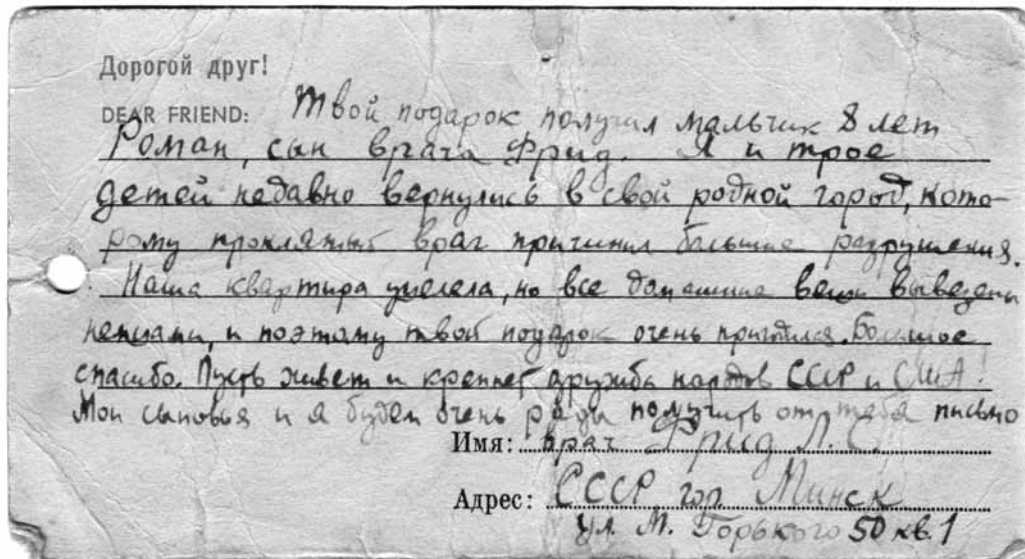 Дорогой друг!
DEAR FRIEND: Твой подарок получил мальчик 8 лет
Роман, сын врача Фрид. Я и трое
детей недавно вернулись в свой родной город, кото-
рому проклятый враг причинил большие разрушения.
Наша квартира уцелела, но все домашние вещи вывезены
немцами, и поэтому твой подарок очень пригодился. Большое
спасибо. Пусть живет и крепнет дружба народов СССР и США!
Мои сыновья и я будем очень рады получить от тебя письмо
Имя: врач Фрид Л. С.
Адрес: СССР гор. Минск
ул. М. Горького 50 кв. 1